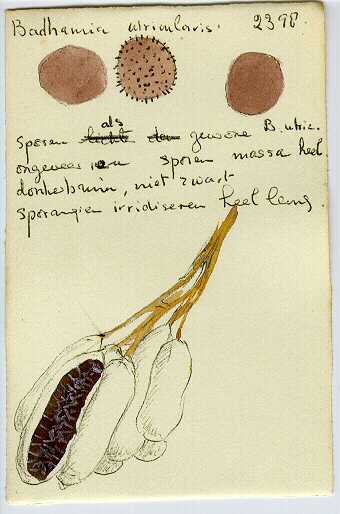 Badhamia utricularis. 2398.
sporen als gewone B. utric.
ongeveer sporen massa heel
donkerbruin, niet zwart
sporangien irridiseren heel lang.